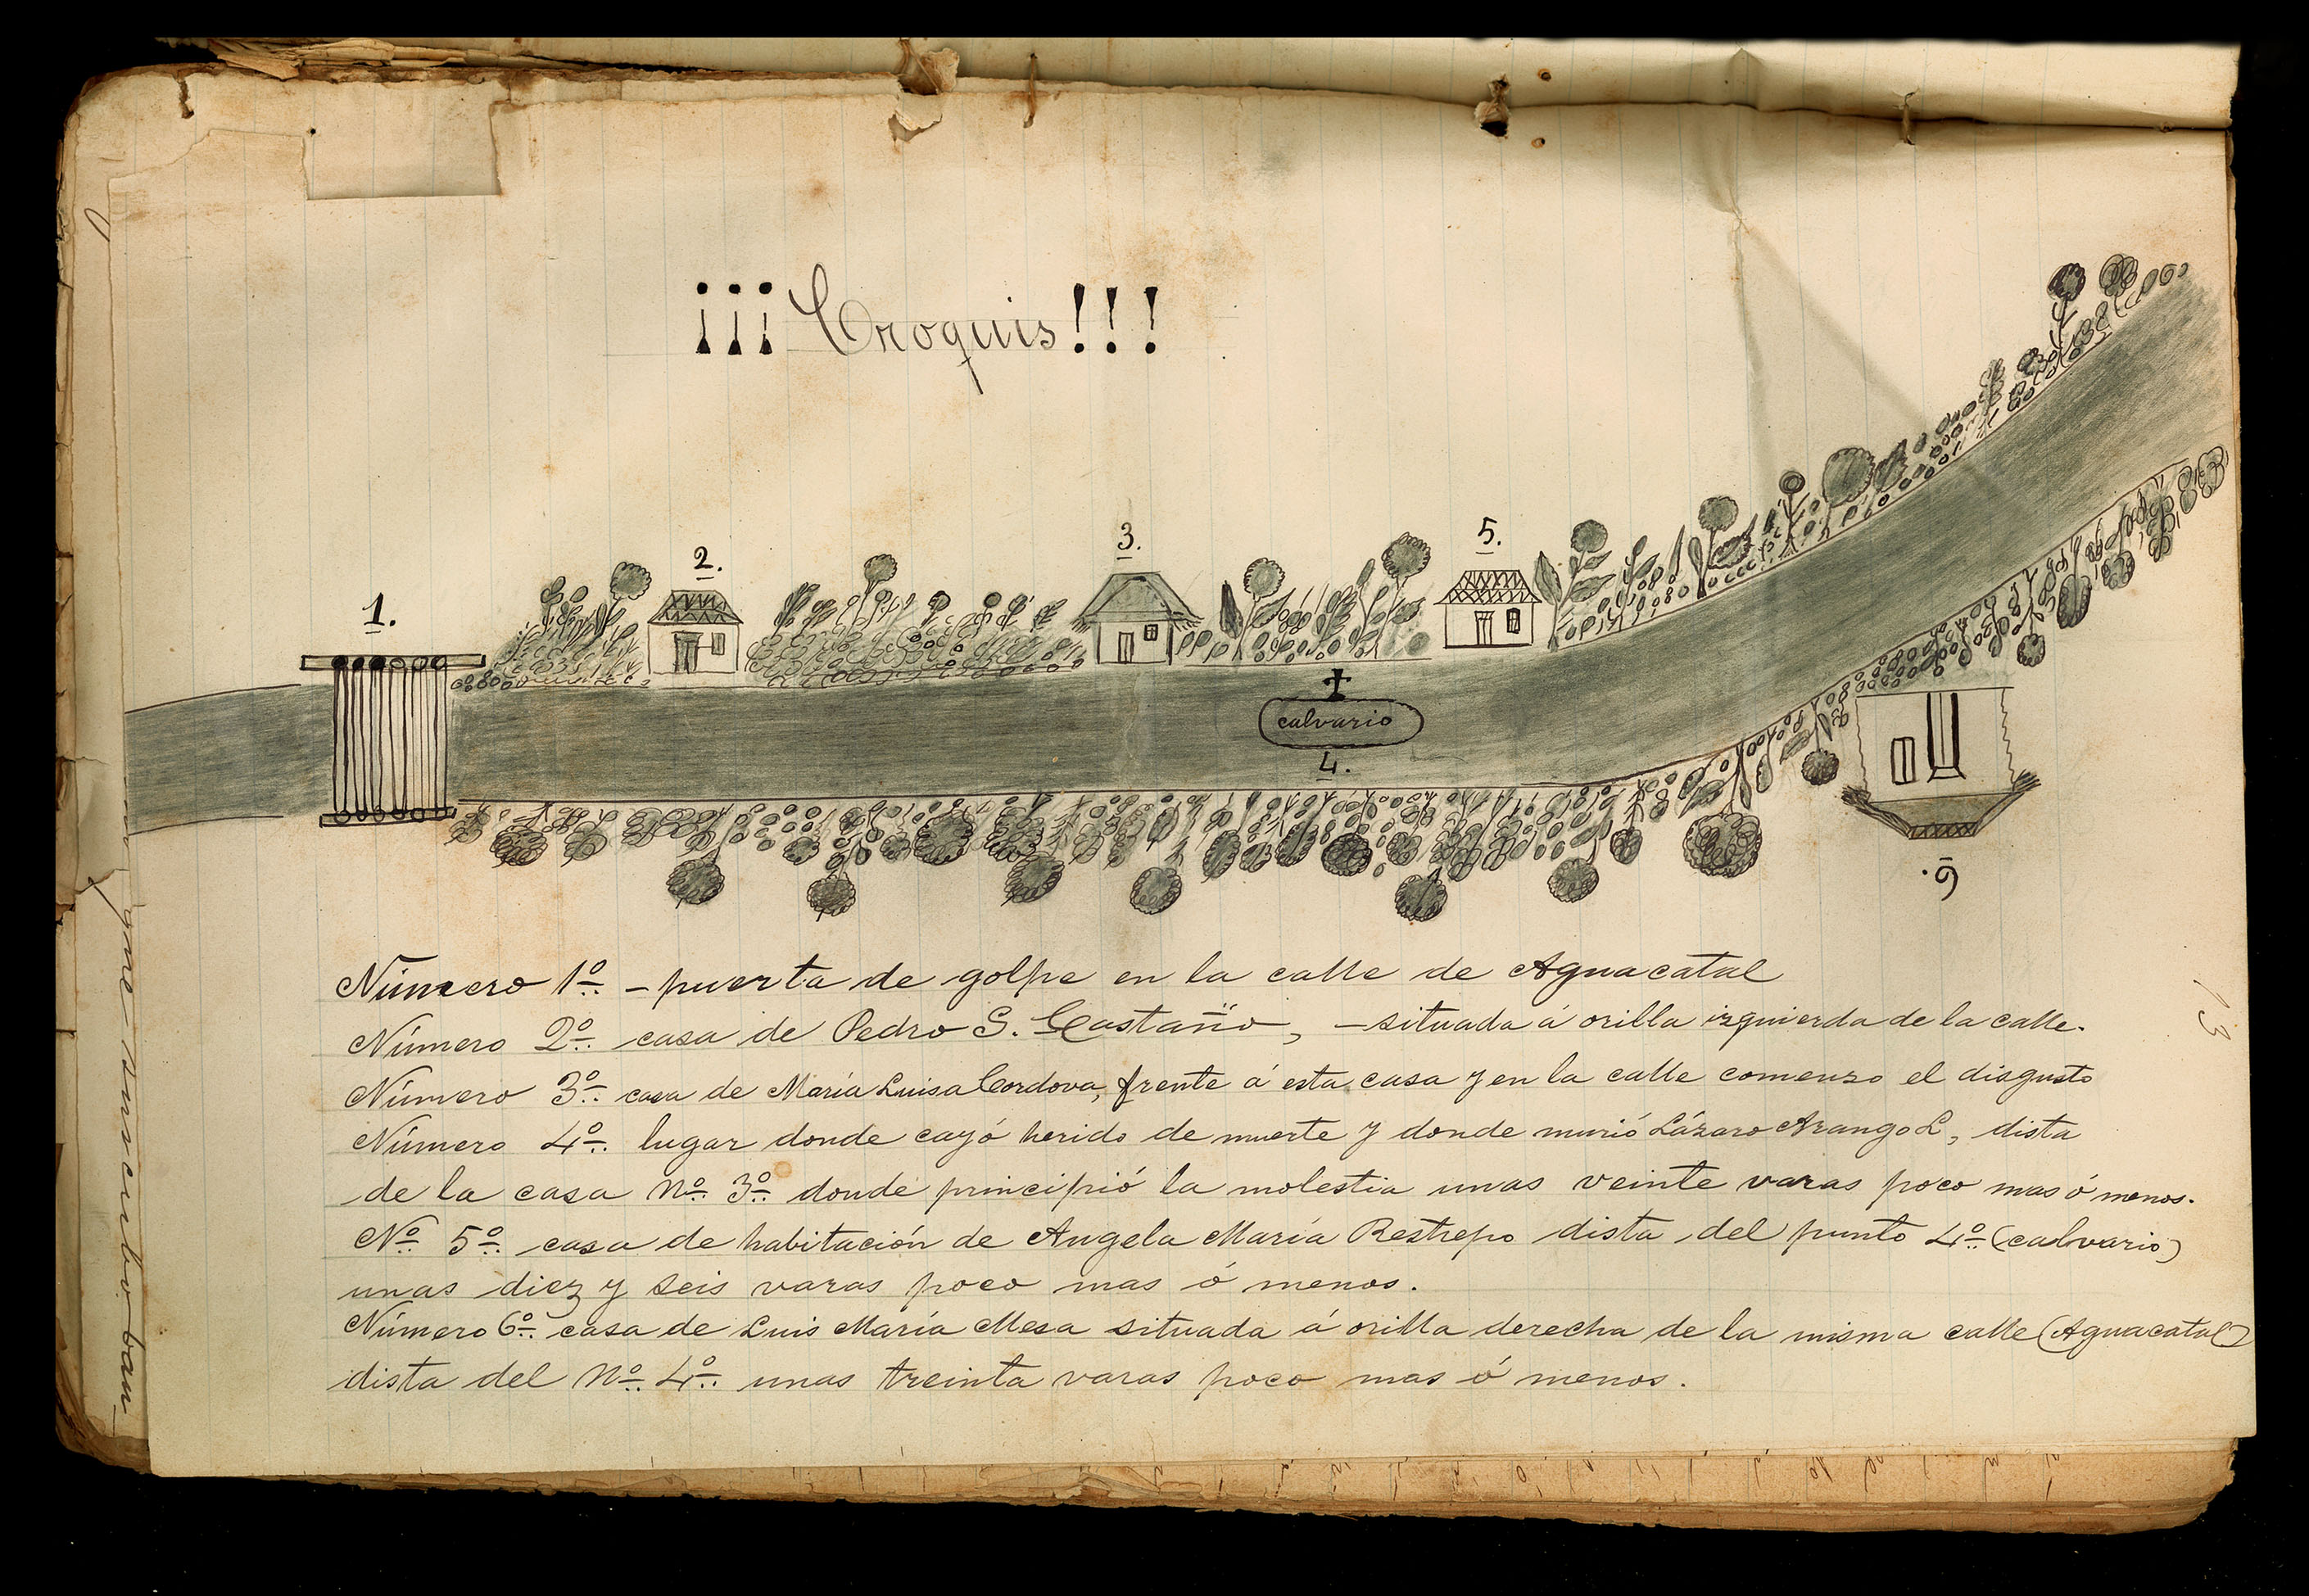 ¡¡¡Croquis!!!
1.
2.
3.
5.
calvario
4.
6.
Número 1º. - puerta de golpe en la calle de Aguacatal
Número 2º. casa de Pedro S. Castaño, - situada á orilla izquierda de la calle.
Número 3º. casa de María Luisa Cordova, frente á esta casa y en la calle comenzo el disgusto
Número 4º. lugar donde cayó herido de muerte y donde murió Lázaro Arango L, dista
de la casa Nº. 3º. donde principió la molestia unas veinte varas poco mas ó menos.
Nº. 5º. casa de habitación de Angela María Restrepo dista del punto 4º. (calvario)
unas diez y seis varas poco mas ó menos.
Número 6º. casa de Luis María Mesa situada á orilla derecha de la misma calle (Aguacatal)
dista del Nº. 4º. unas treinta varas poco mas ó menos.
13